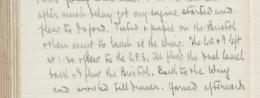 after much delay got my engine started and
flew to Oxford. Tested a pupil on the Bristol
then went to lunch at the Wing. The Col & I left
at 1.30 & flew to the C.F.S. He flew the Dual Camel
back & I flew the Bristol. Back to the Wing
and worked till dinner. Yarned afterwards